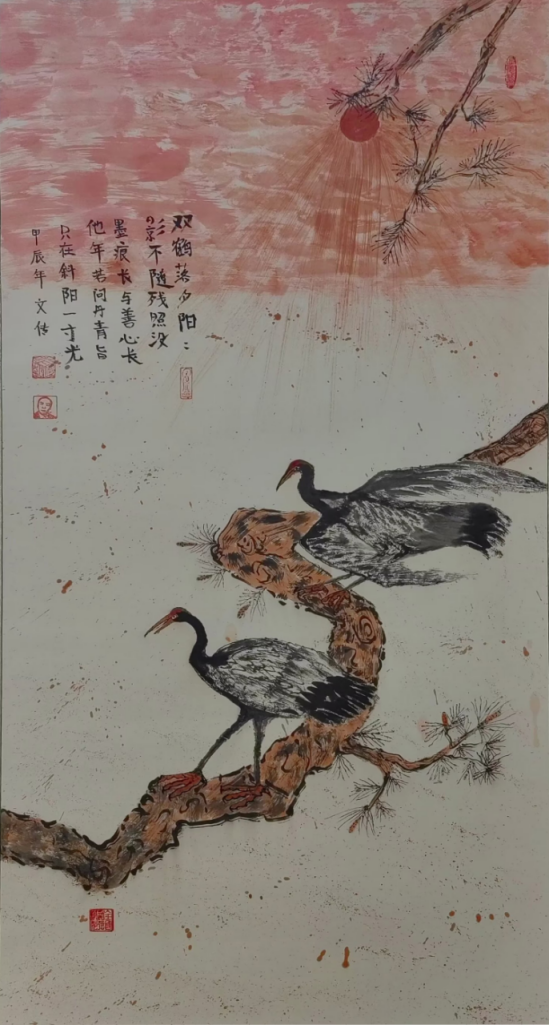 双鹤落夕阳：
影不随残照没
墨痕长与善心长
他年若问丹青旨
只在斜阳一寸光
甲辰年文传